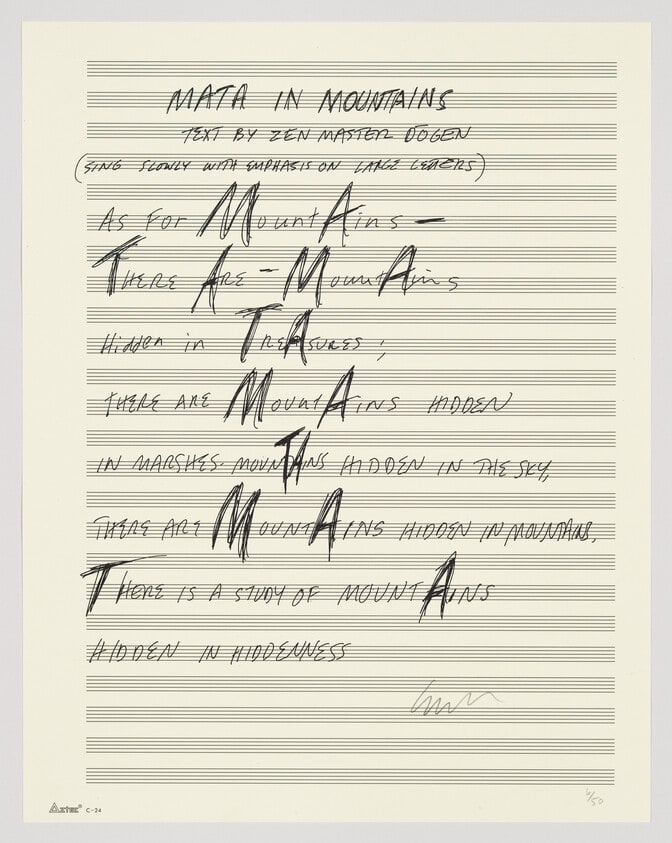 MATA IN MOUNTAINS
TEXT BY ZEN MASTER DŌGEN
(SING SLOWLY WITH EMPHASIS ON LARGE LETTERS)
As FOR MountAins —
THERE ARE – MountAins
Hidden in TREASURES;
THERE ARE MountAINS HIDDEN
IN MARSHES. MOUNTAINS HIDDEN IN THE SKY,
THERE ARE MOUNTAINS HIDDEN IN MOUNTAINS.
THERE IS A STUDY OF MOUNTAINS
HIDDEN IN HIDDENNESS
AZTEC® C-24
6/50